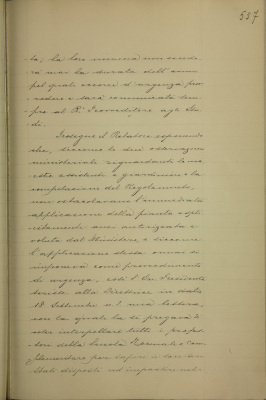 557
ta; la loro nomina non ecceda
mai la durata dell'anno
pel quale occorre d'urgenza
cedere e sarà comunicata sem-
pre al R. Provveditore agli Stu-
di.
Prosegue il Relatore esponendo
che, siccome le due osservazioni
ministeriali riguardanti le ma-
estre assistenti e giardiniere e la
compilazione del Regolamento,
non ostacolavano l'immediata
applicazione della pianta espli-
citamente anzi autorizzata e
voluta dal Ministero, e siccome
l'applicazione stessa ormai si
imponeva come provvedimento
di urgenza, così il Sig. Presidente
scrisse alla Direttrice in data
18 Settembre u. s. una lettera,
con la quale la si pregava di
voler interpellare tutti i profes-
sori della Scuola Normale e Com-
plementare per sapere se sareb-
bero stati disposti ad impartire nel-